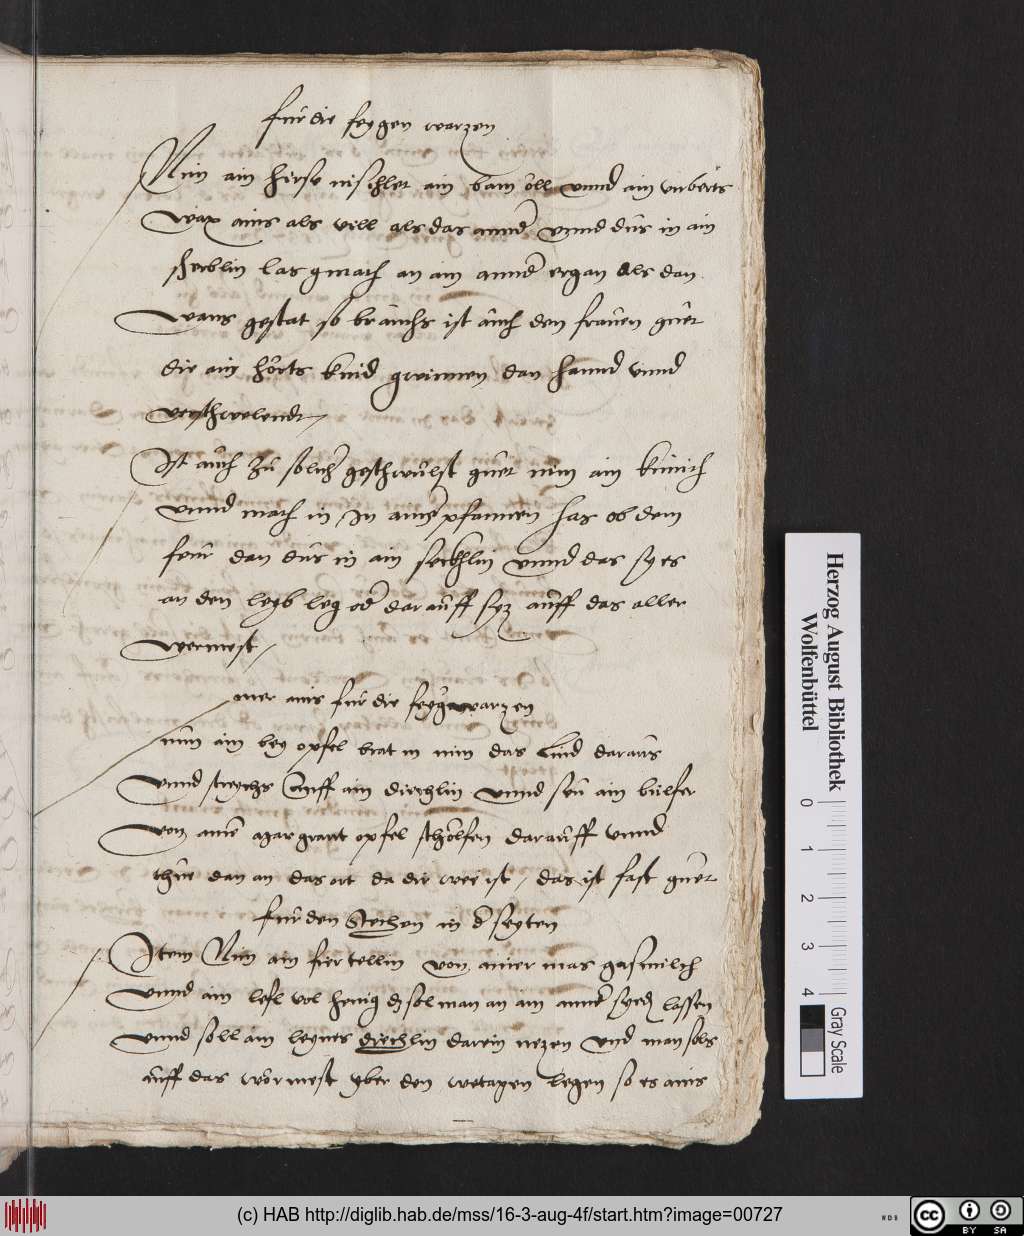 für die feygen warzen
Nim ain hirse unschlet ain bam öll unnd ain unberts
wax ains als vill als das annder unnd dus in ain
scherblin las gmach an ain annder ergan als dan
wans gestat so brauchs ist auch den frauen guet
die ain horts kind gwinnen dan hannd unnd
verschwelendt
Ist auch zu solicher geschwulst guet nim ain kimich
unnd mach in In ainer pfannen has ob dem
feur dan dus in ain seckhlin unnd das sy es
an den leyb leg oder darauff syz auff das aller
wermest
mer ains für die feygwarzen
nim ain bey opfel brat in nim das lind daraus
unnd streychs auff ain diechlin unnd seu ain bulfer
von ainer margrant opfel scholfen darauff unnd
thue dan an das ort da die wee ist, das ist fast guet
für den stechen in der seyten
Item Nim ain fiertellin von ainer mas gasmilch
unnd ain lefl vol henig das sol man an ain annder syeden lassen
unnd soll ain leynes diechlin darein nezen und man sols
auff das wormest yber den wetagen legen so es ains
Herzog August Bibliothek
Wolfenbüttel
0 1 2 3 4
Gray Scale
(c) HAB http://diglib.hab.de/mss/16-3-aug-4f/start.htm?image=00727
WDB
cc BY SA